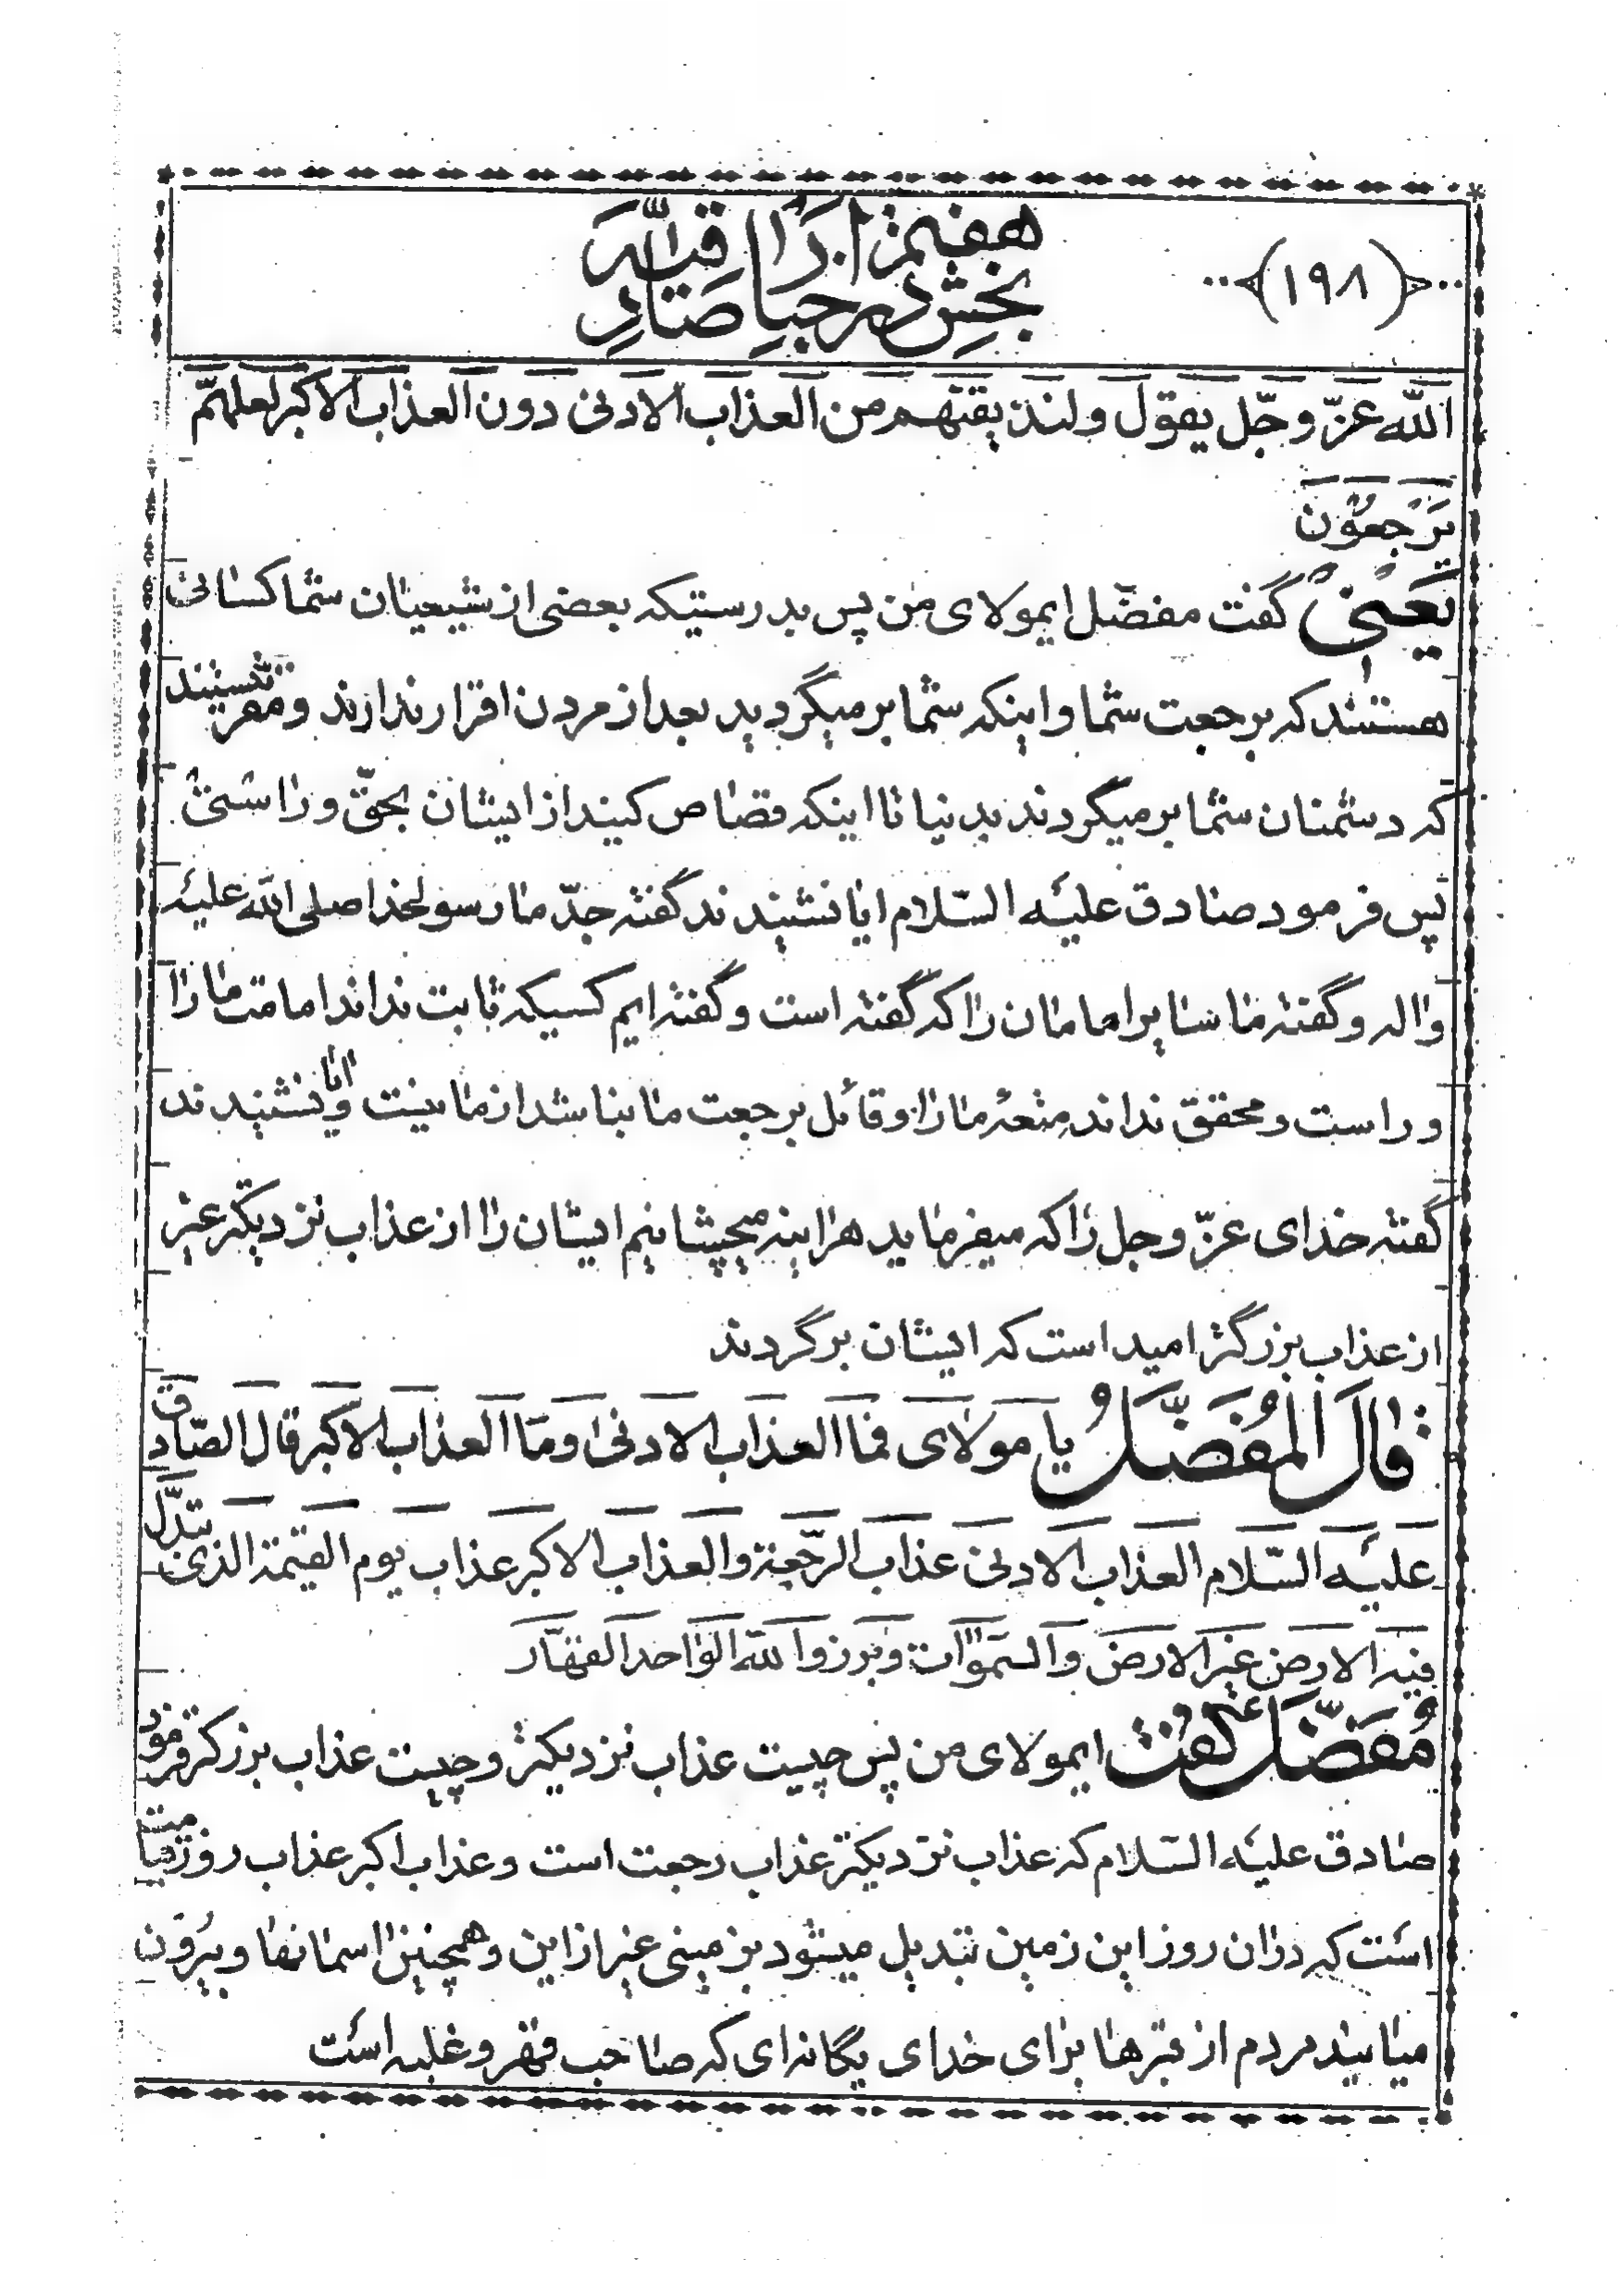 (۱۹۸)
بخش هفتم در
اللّه عزّ و جّل یقول ولنذیقنّهم من العذاب الادنی دون العذاب الاکبر لعلهّم
یَرْجعوُن
یَعنی گفت مفضّل ایمولای من پس بدرستیکه بعضی از شیعیان شما کسانی
هستند که برجعت شما و اینکه شما برمیگردید بعد از مردن اقرار ندارند و مقرّ نیستند
که دشمنان شما برمیگردند بدنیا تا اینکه قصاص کنید از ایشان بحقّ و راستی
پس فرمود صادق علیه السّلام ایا نشنیدند گفته جدّ ما رسولخدا صلی اللّه علیه
و اله و گفته ما سایر امامان را که گفته است و گفته ایم کسیکه ثابت نداند امامت ما را
و راست و محقق نداند متعهٔ ما را و قائل برجعت ما نباشد از ما نیست و ایا نشنیدند
گفته خدای عزّ و جل را که میفرماید هراینه میچشانیم ایشان را از عذاب نزدیکتر غیر
از عذاب بزرگتر امید است که ایشان برگردند
قالَ المُفَضَّلُ یا مولای فما العذاب الادنی و ما العذاب الاکبر قال الصّادق
علیه السّلام العذاب الادنی عذاب الرّجعة و العذاب الاکبر عذاب یوم القیمة الذی تبدّل
فیه الارض غیر الارض والسّموات وبرزوا للّه الواحد القهّار
مُفَضَّل گفت ایمولای من پس چیست عذاب نزدیکتر و چیست عذاب بزرگتر فرمود
صادق علیه السّلام که عذاب نزدیکتر عذاب رجعت است و عذاب اکبر عذاب روز قیامت
است که دران روز این زمین تبدیل میشود بزمینی غیر از این و همچنین اسمانها و بیرون
میایند مردم از قبرها برای خدای یگانه ای که صاحب قهر و غلبه است